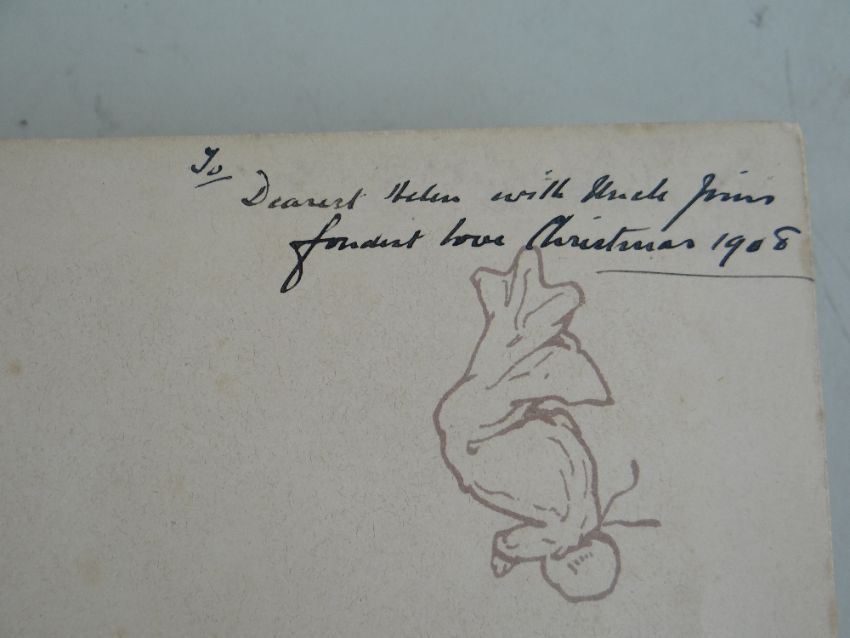 To
Dearest Helen with Uncle Jim's
fondest love Christmas 1908